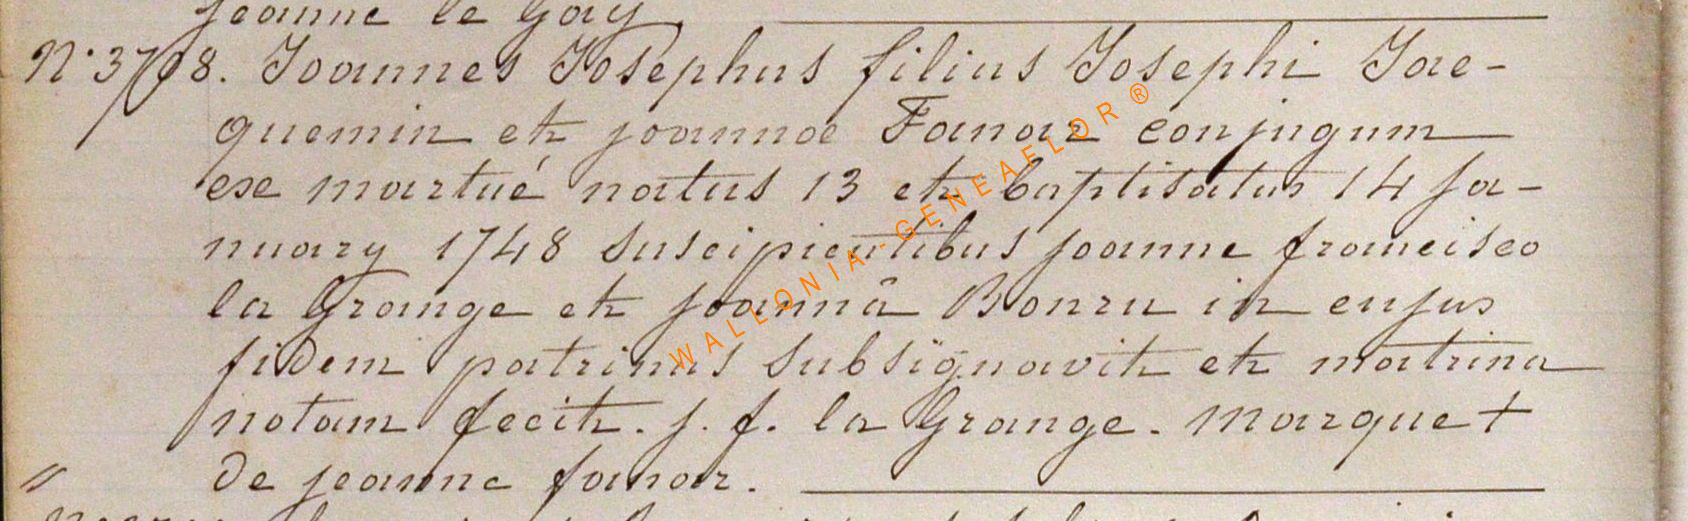 jeanne le Gay
N.° 3708. Joannes Josephus filius Josephi Jac-
quemin et joannae Fanar conjugum
ex martué natus 13 et baptisatus 14 ja-
nuary 1748 suscipientibus joanne francisco
la Grange et joannâ Bonru in cujus
fidem patrinus subsignavit et matrina
notam fecit. j. f. la Grange. marque +
" de jeanne fanar.
WALLONIA-GENEAFLOR®